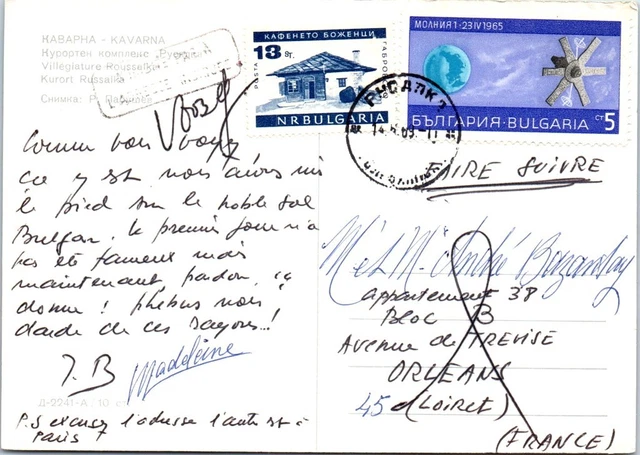 КАВАРНА - KAVARNA
Курортен комплекс „Русалка"
Villegiature Roussalka
Kurort Russalka
Снимка: Р.
КАФЕНЕТО БОЖЕНЦИ
13 ST.
POSTA
ГАБРОВО
NR BULGARIA
МОЛНИЯ 1-23 IV 1965
БЪЛГАРИЯ-BULGARIA СТ 5
РУСАЛКА
Comme vous voyez
ça y est nous avons mis
le pied sur le noble sol
Bulgar. le premier jour n'a
pas été fameux mais
maintenant pardon, "ça
donne! phébus nous
darde de ces rayons..!
J.B Madeleine
Д-2241-А. 10 ст
P.S excusez l'adresse l'autre est à
Paris
FAIRE SUIVRE
M et Mme André
appartement 38
BLOC B
Avenue de TREVISE
ORLEANS
45 (Loiret)
(FRANCE)